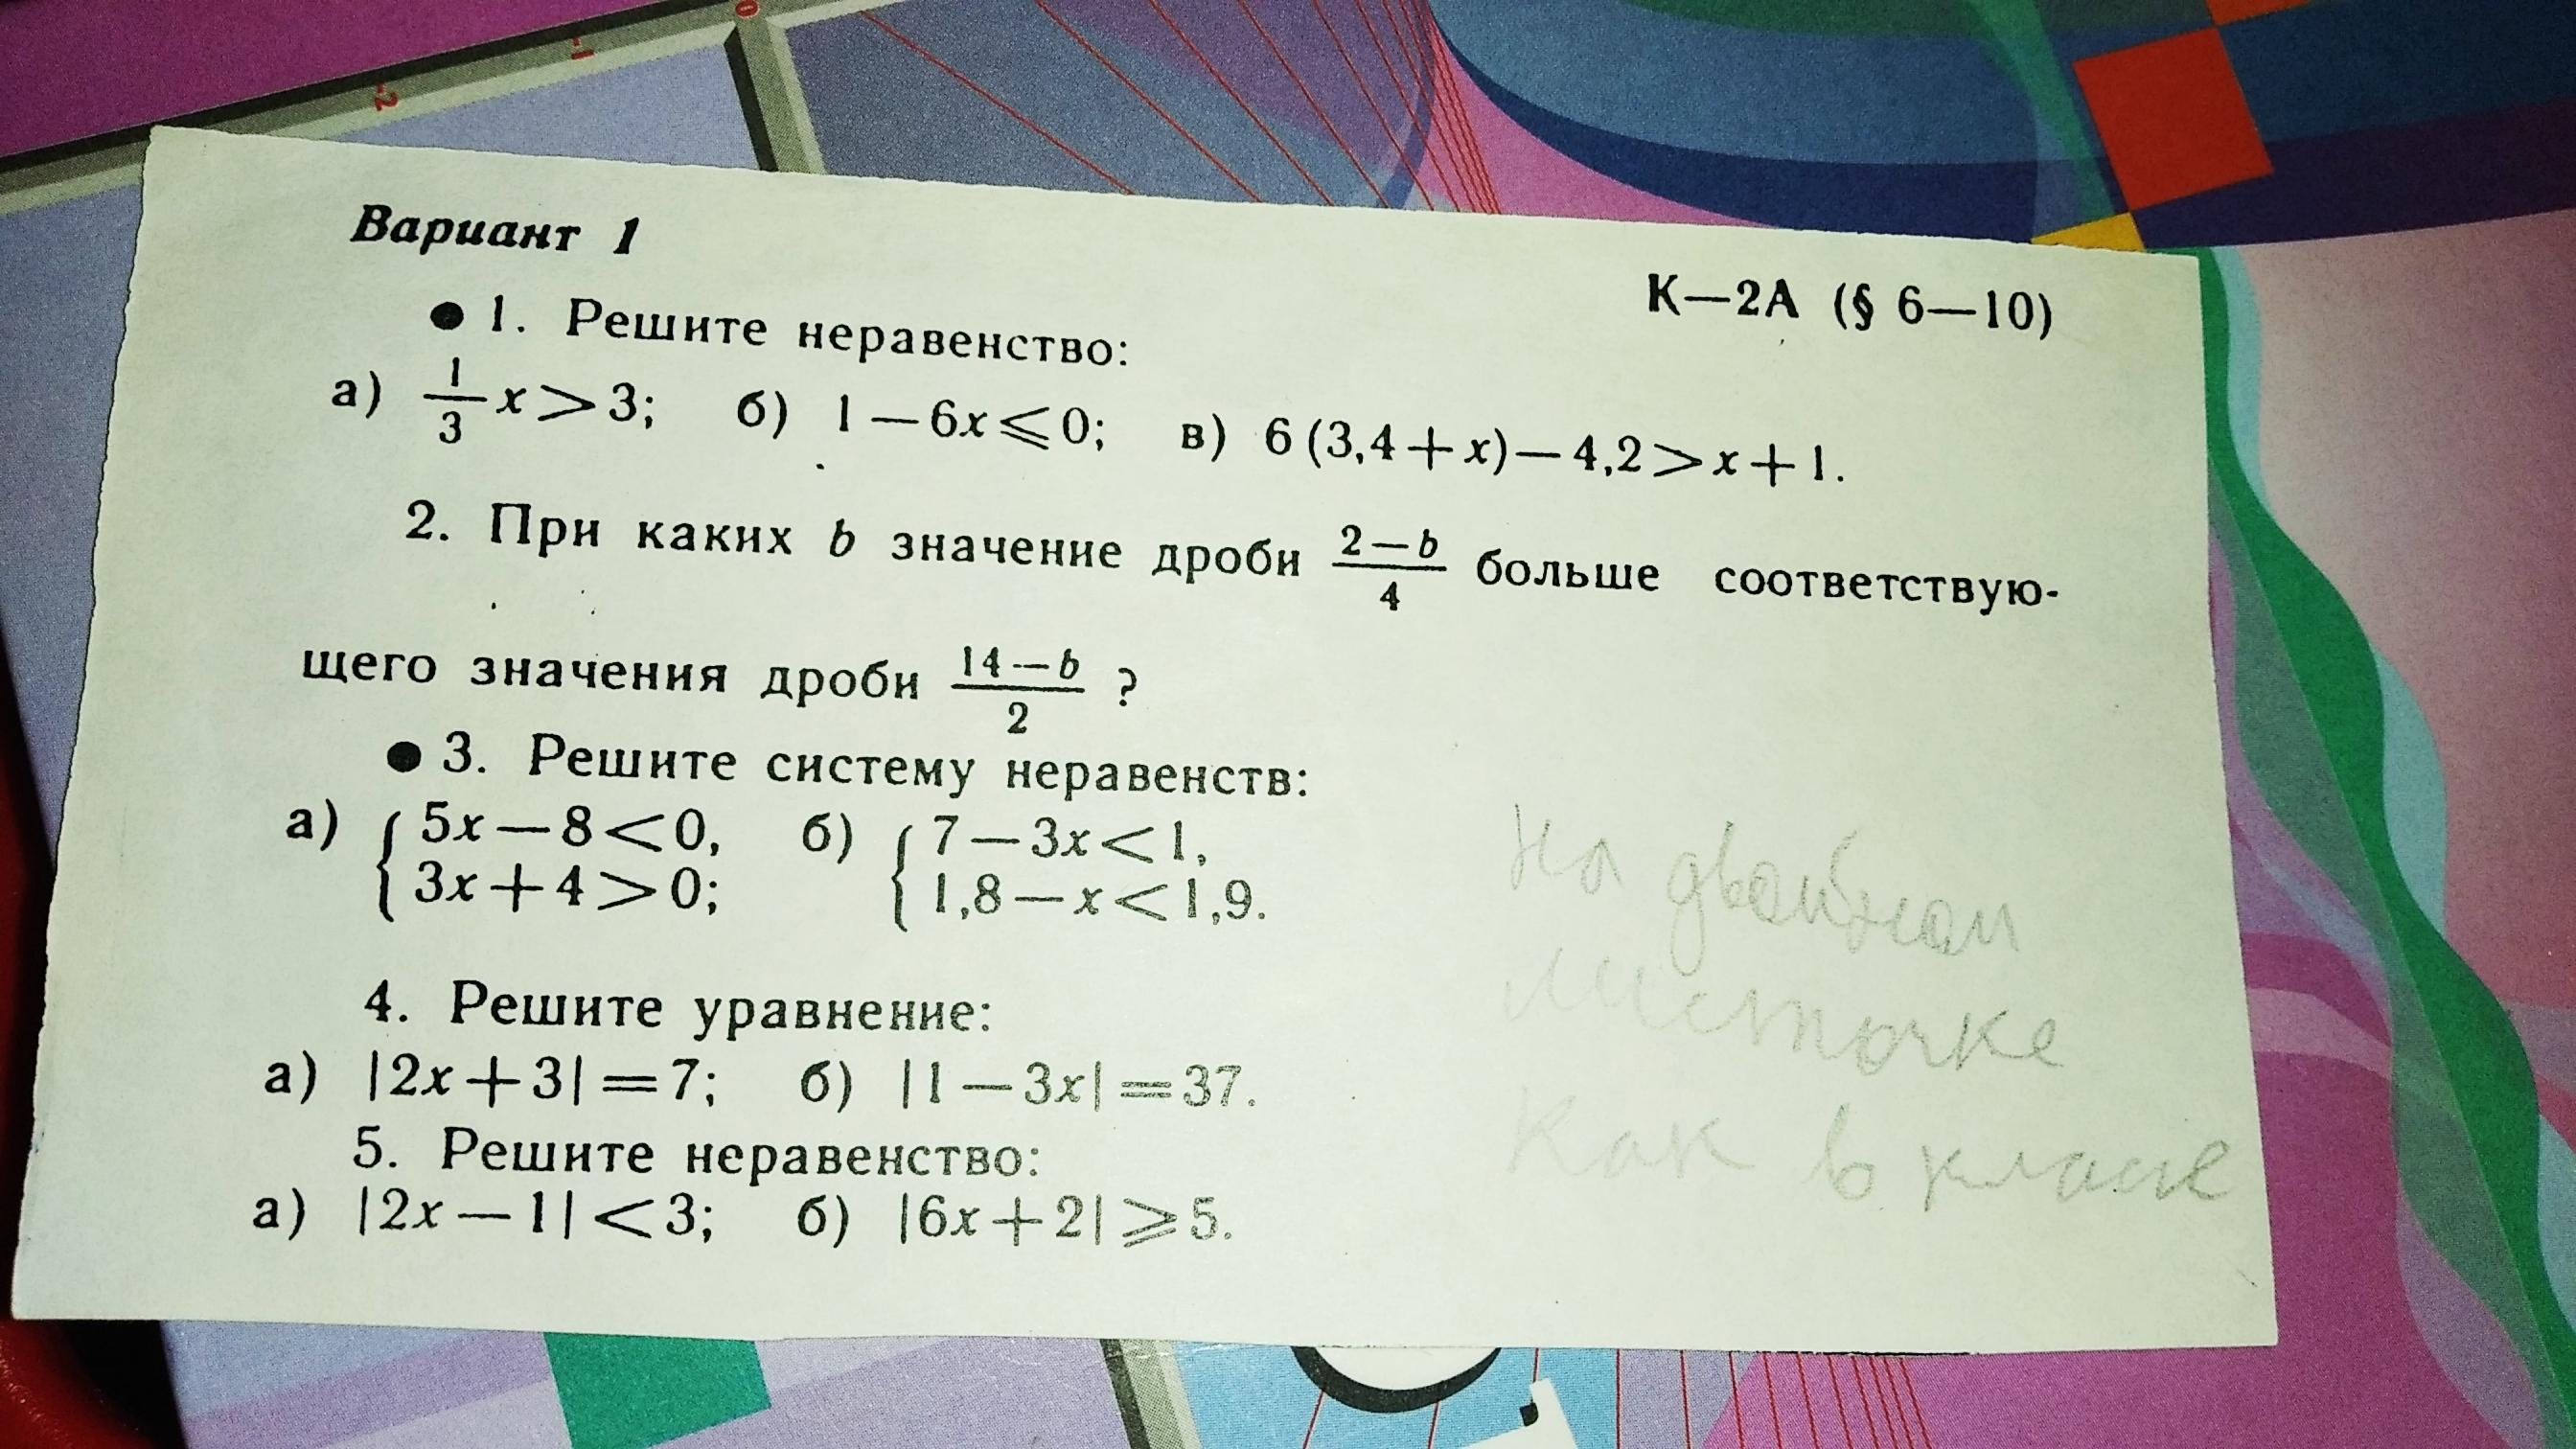 0
-1
-2
Вариант 1
К—2А (§ 6—10)
● 1. Решите неравенство:
а) 1/3 x > 3; б) 1 — 6x ⩽ 0; в) 6 (3,4 + x) — 4,2 > x + 1.
2. При каких b значение дроби (2 — b)/4 больше соответствую-
щего значения дроби (14 — b)/2 ?
● 3. Решите систему неравенств:
а) { 5x — 8 < 0, б) { 7 — 3x < 1,
3x + 4 > 0; 1,8 — x < 1,9.
4. Решите уравнение:
а) |2x + 3| = 7; б) |1 — 3x| = 37.
5. Решите неравенство:
а) |2x — 1| < 3; б) |6x + 2| ⩾ 5.
на двойном
листочке
как в классе